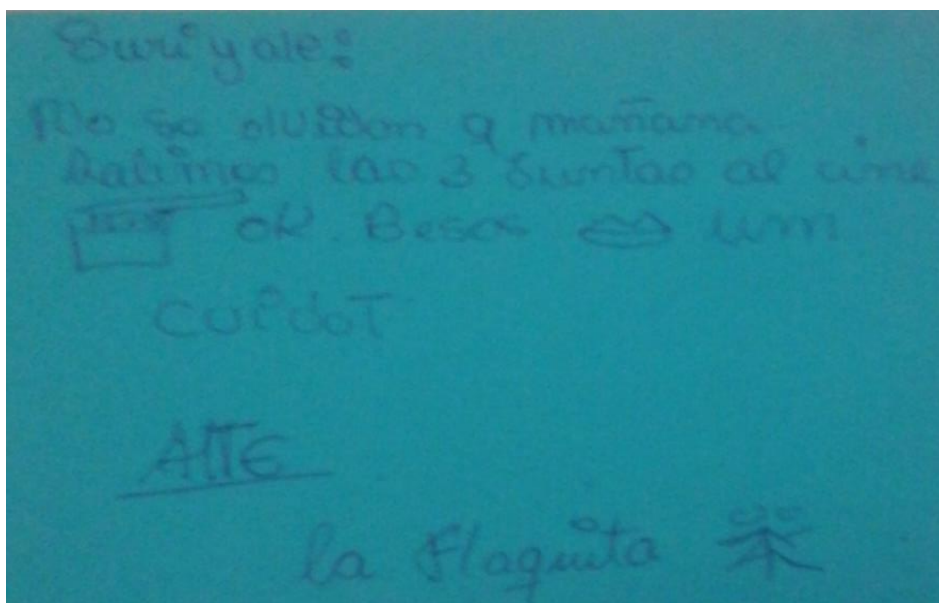 Suri y ale:
No se olviden q mañana
salimos las 3 Juntas al cine
ok. Besos um
CUIDOT
ATTE
la Flaquita